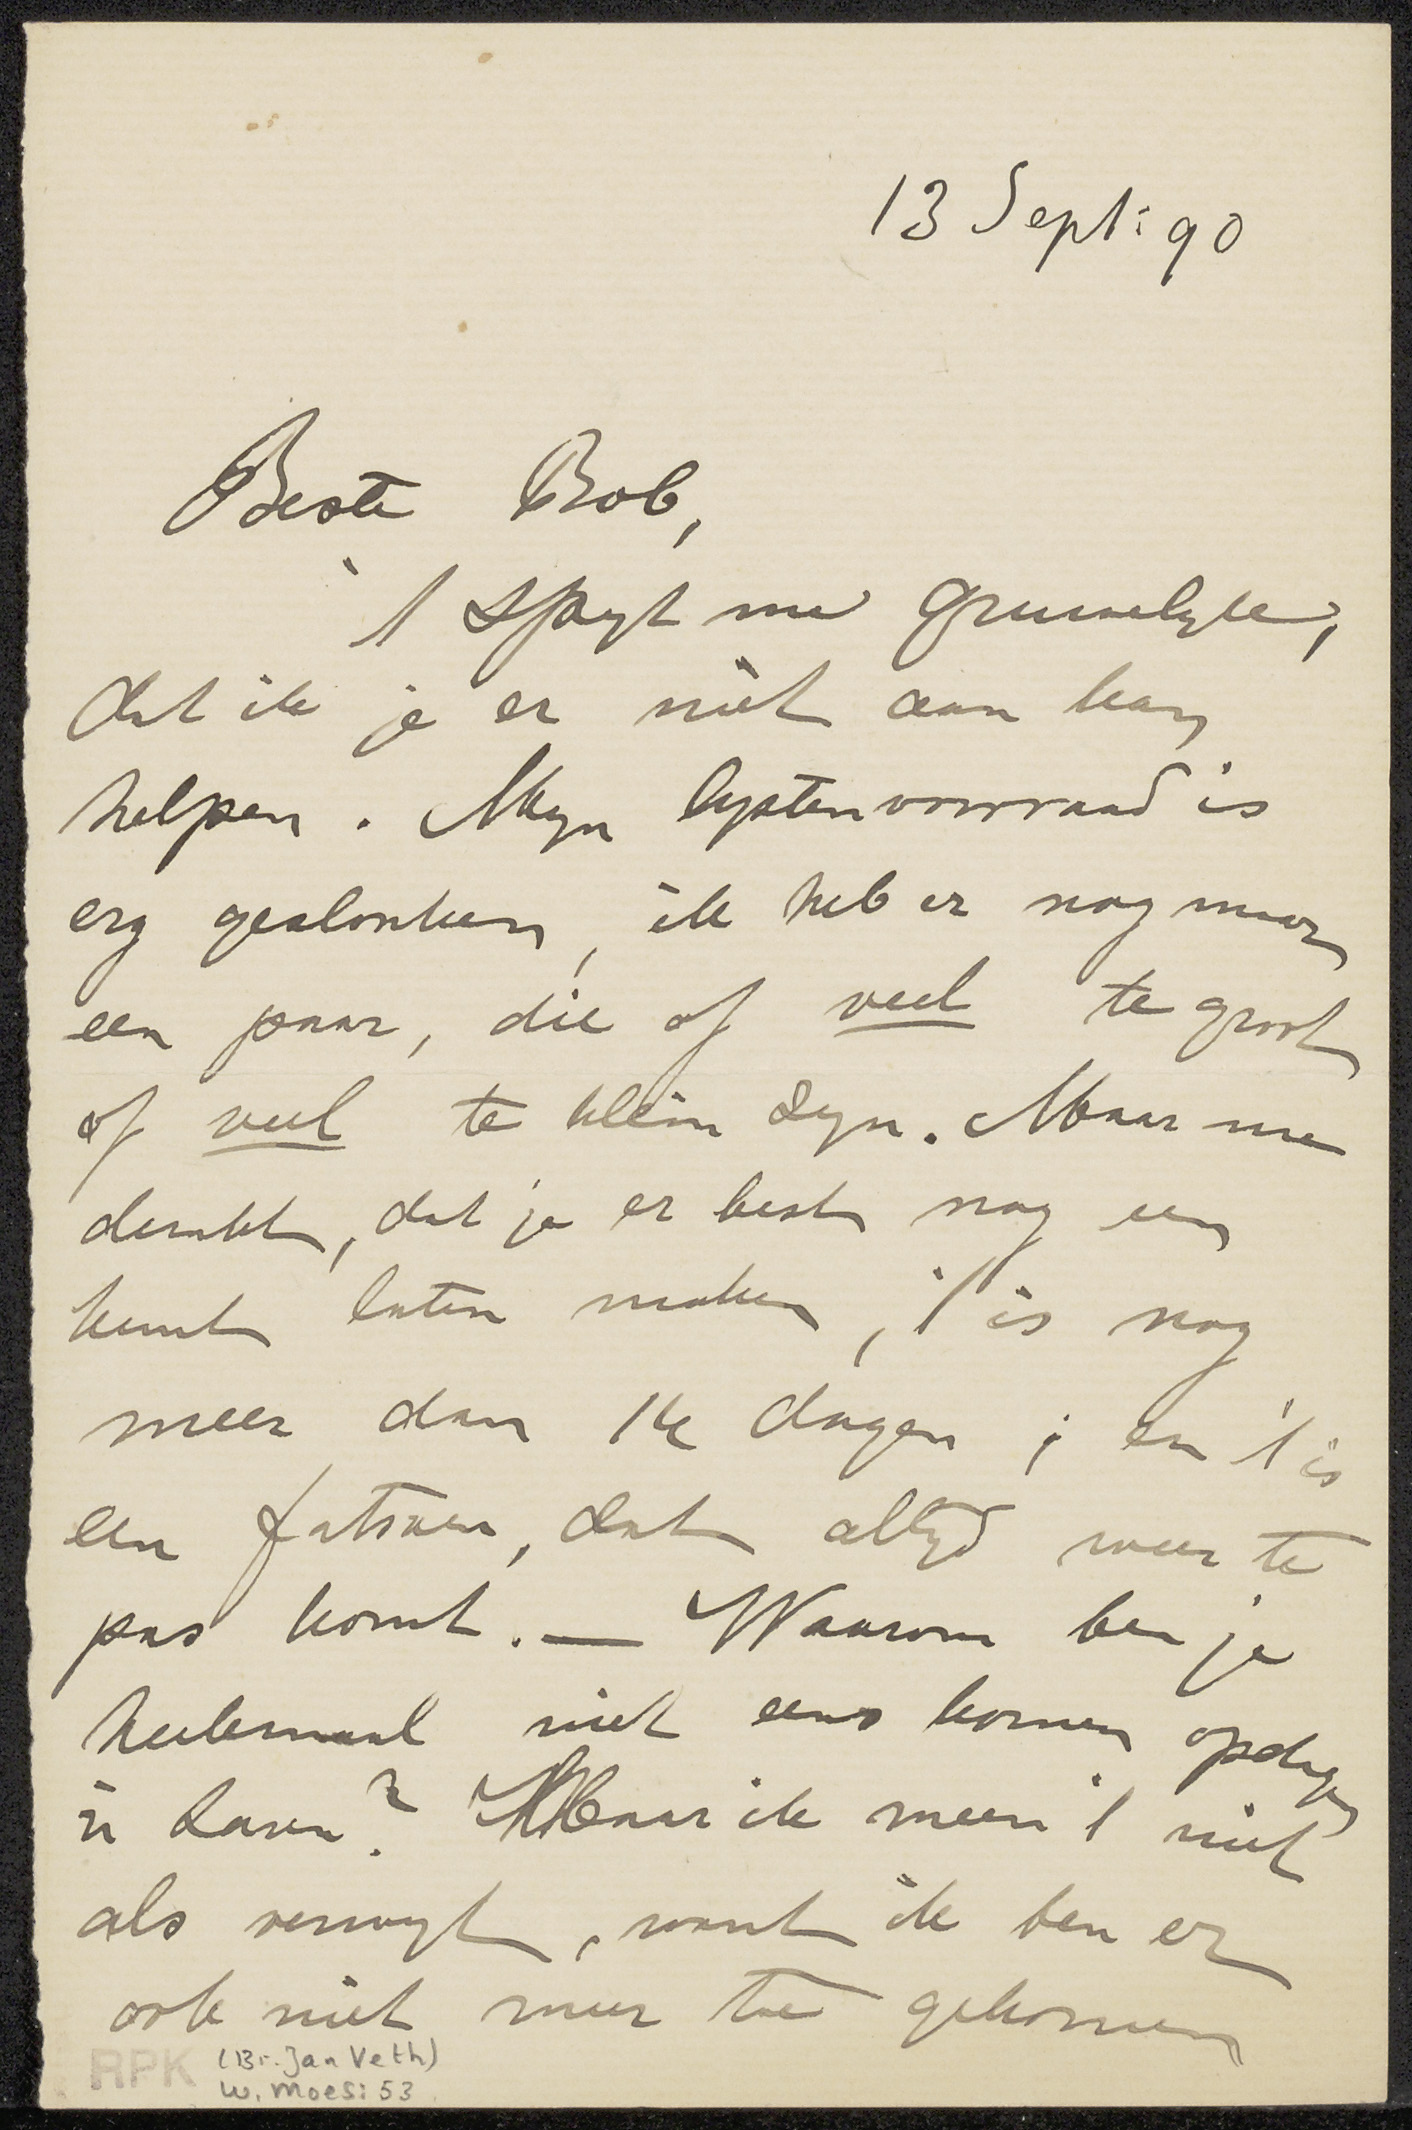 13 Sept: 90
Beste Bob,
't spyt me gruwelyk,
dat ik je er niet aan kan
helpen. Myn lystenvoorraad is
erg geslonken, ik heb er nog maar
een paar, die of veel te groot
of veel te klein zyn. Maar me
dunkt, dat je er best nog een
kunt laten maken, 't is nog
meer dan 14 dagen; en 't is
een fatsoen, dat altyd weer te
pas komt. — Waarom ben je
heelemaal niet eens komen opdagen
in Laren? Maar ik meen 't niet
als verwyt, want ik ben er
ook niet meer toe gekomen
RPK (Br. Jan Veth)
W. Moes: 53